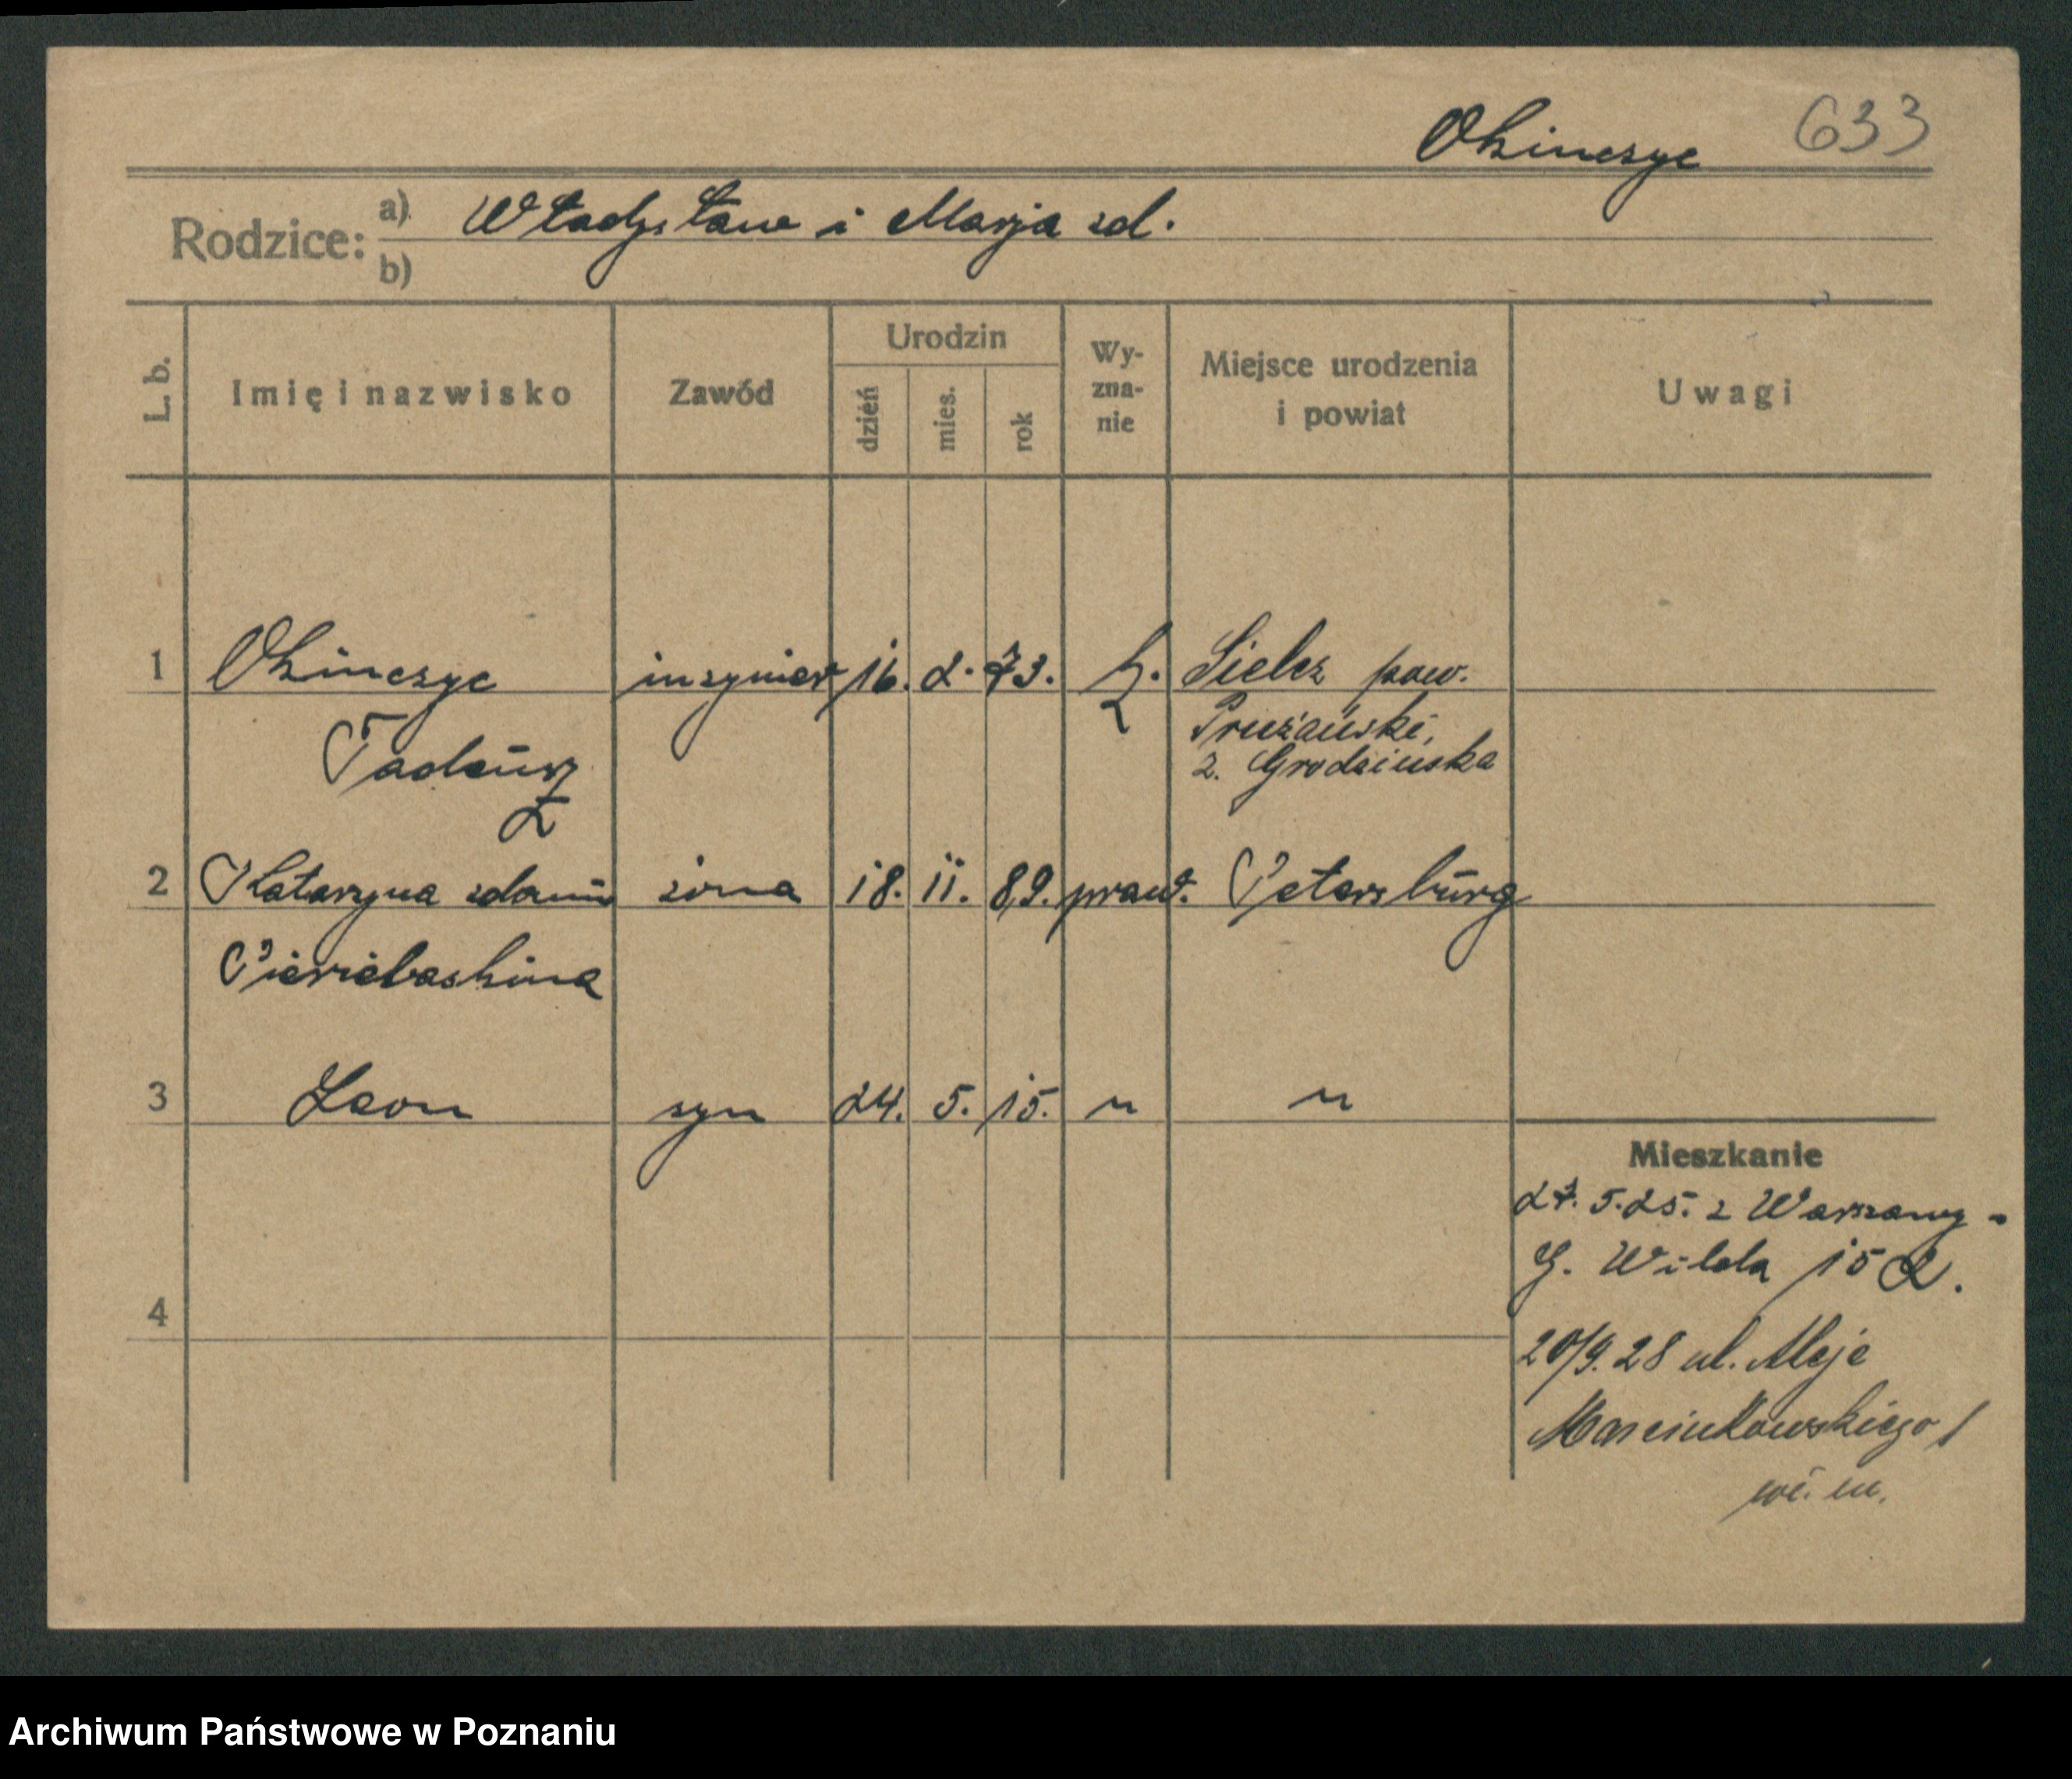 Okinczyc 633
Rodzice: a) Władysław i Marja zd.
b)
L. b. Imię i nazwisko Zawód Urodzin dzień mies. rok Wy-zna-nie Miejsce urodzenia i powiat Uwagi
1 Okinczyc inżynier 16. 2. 73. k. Sielcz pow.
Tadeusz Prużański,
z. Grodzieńska
2 Katarzyna żona 18. 11. 89. praw. Petersburg
Pieriebaskina
3 Leon syn 24. 5. 15. " "
Mieszkanie
27. 5. 25. z Warszawy -
G. Wilda 152.
4
20/9. 28 ul. Aleje
Marcinkowskiego 1
Archiwum Państwowe w Poznaniu